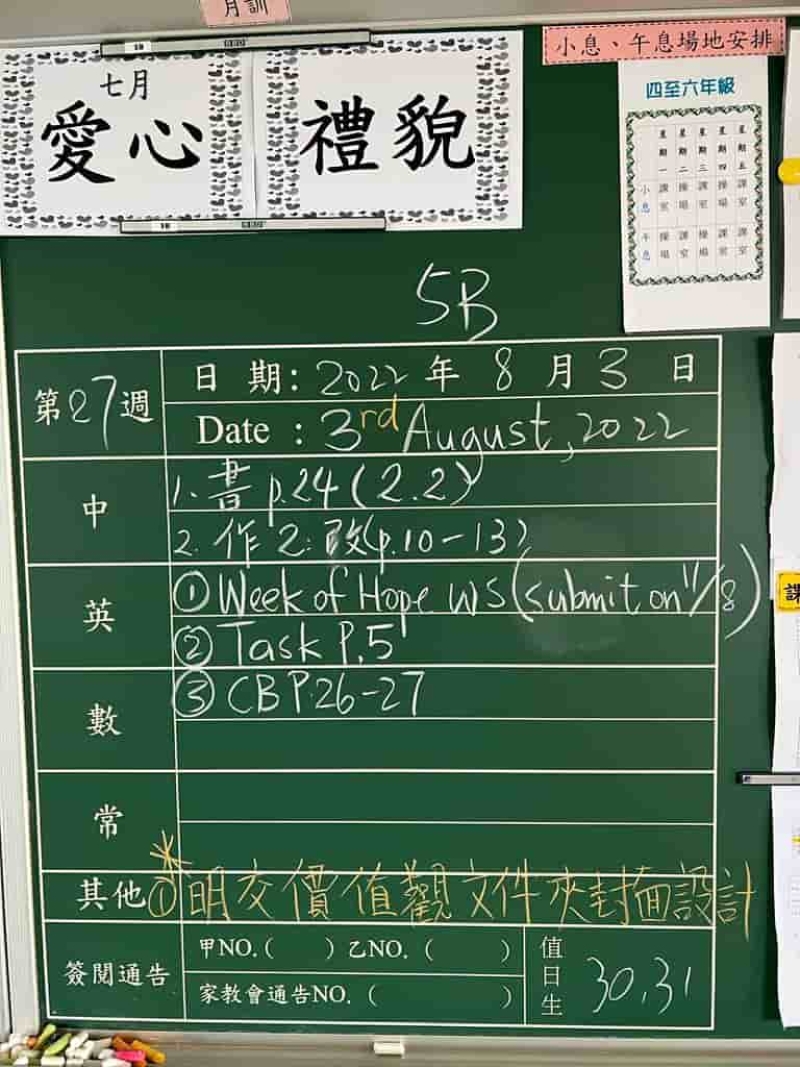 月訓
七月
愛心 禮貌
小息、午息場地安排
四至六年級
星期一 星期二 星期三 星期四 星期五
小息 課室 操場 課室 操場 課室
午息 操場 課室 操場 課室 操場
5B
第27週
日期：2022年8月3日
Date : 3rd August, 2022
中
1. 書 p.24 (2.2)
2. 作2: 改(p.10-13)
英
① Week of Hope WS (submit on 11/8)
② Task P.5
③ CB P.26-27
數
常
其他 ① 明交價值觀文件夾封面設計
簽閱通告
甲NO. ( ) 乙NO. ( )
家教會通告NO. ( )
值日生 30, 31
課